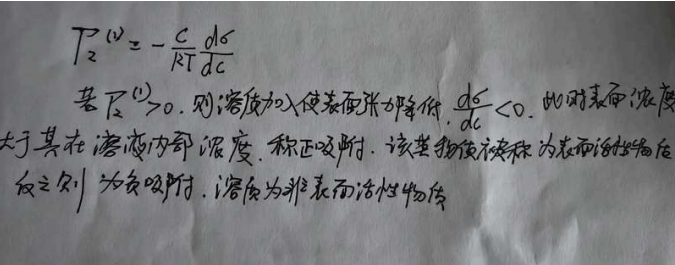 Γ₂⁽¹⁾ = - c/RT dσ/dc
若Γ₂⁽¹⁾>0. 则溶质加入使表面张力降低, dσ/dc <0. 此时表面浓度
大于其在溶液内部浓度. 称正吸附. 该类物质被称为表面活性物质
反之则为负吸附. 溶质为非表面活性物质